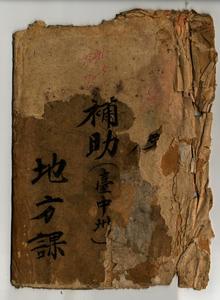 補助(臺中州)
地方課